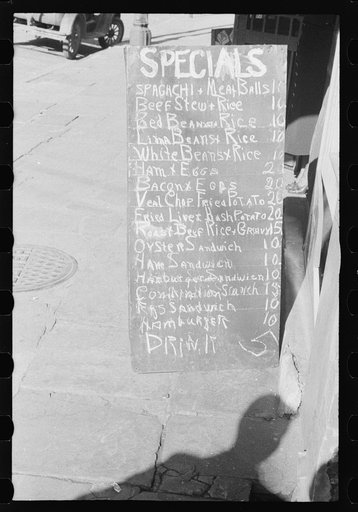 SPECIALS
SPAGACHI + Meat Balls 10
Beef Stew + Rice 10
Red Beans x Rice 10
Lima Beans x Rice 10
White Beans x Rice 10
Ham x Eggs 20
Bacon x Eggs 20
Veal Chop Fried Potato 20
Fried Liver x Hash Potato 20
Roast Beef Rice x Gravy 15
Oyster Sandwich 10
Ham Sandwich 10
Hamburger Sandwich 10
Egg Sandwich 10
Hamburger 10
DRINK 5